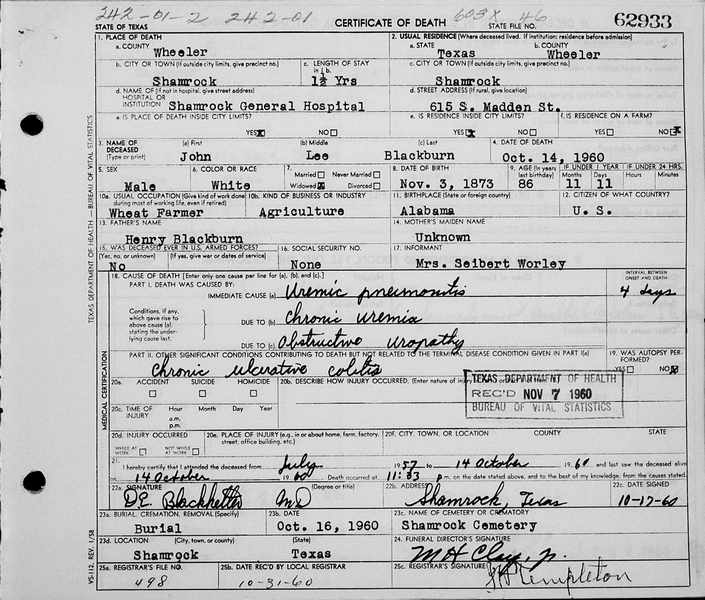 242-01-2 242-01 603X 46
STATE OF TEXAS CERTIFICATE OF DEATH STATE FILE NO. 62933
1. PLACE OF DEATH 2. USUAL RESIDENCE (Where deceased lived. If institution: residence before admission)
a. COUNTY a. STATE b. COUNTY
Wheeler Texas Wheeler
b. CITY OR TOWN (If outside city limits, give precinct no.) c. LENGTH OF STAY in 1b. c. CITY OR TOWN (If outside city limits, give precinct no.)
Shamrock 1½ Yrs Shamrock
d. NAME OF (If not in hospital, give street address) HOSPITAL OR INSTITUTION d. STREET ADDRESS (If rural, give location)
Shamrock General Hospital 615 S. Madden St.
e. IS PLACE OF DEATH INSIDE CITY LIMITS? e. IS RESIDENCE INSIDE CITY LIMITS? f. IS RESIDENCE ON A FARM?
YES X NO YES X NO YES NO X
3. NAME OF DECEASED (Type or print) (a) First (b) Middle (c) Last 4. DATE OF DEATH
John Lee Blackburn Oct. 14, 1960
5. SEX 6. COLOR OR RACE 7. Married Never Married Widowed X Divorced 8. DATE OF BIRTH 9. AGE (In years last birthday) IF UNDER 1 YEAR Months Days IF UNDER 24 HRS. Hours Minutes
Male White Nov. 3, 1873 86 11 11
10a. USUAL OCCUPATION (Give kind of work done during most of working life, even if retired) 10b. KIND OF BUSINESS OR INDUSTRY 11. BIRTHPLACE (State or foreign country) 12. CITIZEN OF WHAT COUNTRY?
Wheat Farmer Agriculture Alabama U. S.
13. FATHER'S NAME 14. MOTHER'S MAIDEN NAME
Henry Blackburn Unknown
15. WAS DECEASED EVER IN U.S. ARMED FORCES? 16. SOCIAL SECURITY NO. 17. INFORMANT
(Yes, no, or unknown) (If yes, give war or dates of service)
No None Mrs. Seibert Worley
18. CAUSE OF DEATH [Enter only one cause per line for (a), (b), and (c).] INTERVAL BETWEEN ONSET AND DEATH
PART I. DEATH WAS CAUSED BY:
IMMEDIATE CAUSE (a) Uremic pneumonitis 4 days
Conditions, if any, which gave rise to above cause (a) stating the underlying cause last.
DUE TO (b) Chronic uremia
DUE TO (c) Obstructive uropathy
PART II. OTHER SIGNIFICANT CONDITIONS CONTRIBUTING TO DEATH BUT NOT RELATED TO THE TERMINAL DISEASE CONDITION GIVEN IN PART I(a) 19. WAS AUTOPSY PERFORMED?
Chronic ulcerative colitis YES NO X
20a. ACCIDENT SUICIDE HOMICIDE 20b. DESCRIBE HOW INJURY OCCURRED. (Enter nature of
TEXAS DEPARTMENT OF HEALTH
REC'D NOV 7 1960
BUREAU OF VITAL STATISTICS
20c. TIME OF INJURY Hour Month Day Year
a.m.
p.m.
20d. INJURY OCCURRED 20e. PLACE OF INJURY (e.g., in or about home, farm, factory, street, office building, etc.) 20f. CITY, TOWN, OR LOCATION COUNTY STATE
WHILE AT WORK NOT WHILE AT WORK
21. I hereby certify that I attended the deceased from July 1957 to 14 October 1960 and last saw the deceased alive
on 14 October 1960 Death occurred at 11:03 p.m. on the date stated above, and to the best of my knowledge, from the causes stated.
22a. SIGNATURE (Degree or title) 22b. ADDRESS 22c. DATE SIGNED
MD Shamrock, Texas 10-17-60
23a. BURIAL, CREMATION, REMOVAL (Specify) 23b. DATE 23c. NAME OF CEMETERY OR CREMATORY
Burial Oct. 16, 1960 Shamrock Cemetery
23d. LOCATION (City, town, or county) (State) 24. FUNERAL DIRECTOR'S SIGNATURE
Shamrock Texas M H Clay, Jr.
25a. REGISTRAR'S FILE NO. 25b. DATE REC'D BY LOCAL REGISTRAR 25c. REGISTRAR'S SIGNATURE
498 10-31-60 Templeton
TEXAS DEPARTMENT OF HEALTH — BUREAU OF VITAL STATISTICS
MEDICAL CERTIFICATION
VS-112, REV. 1/58